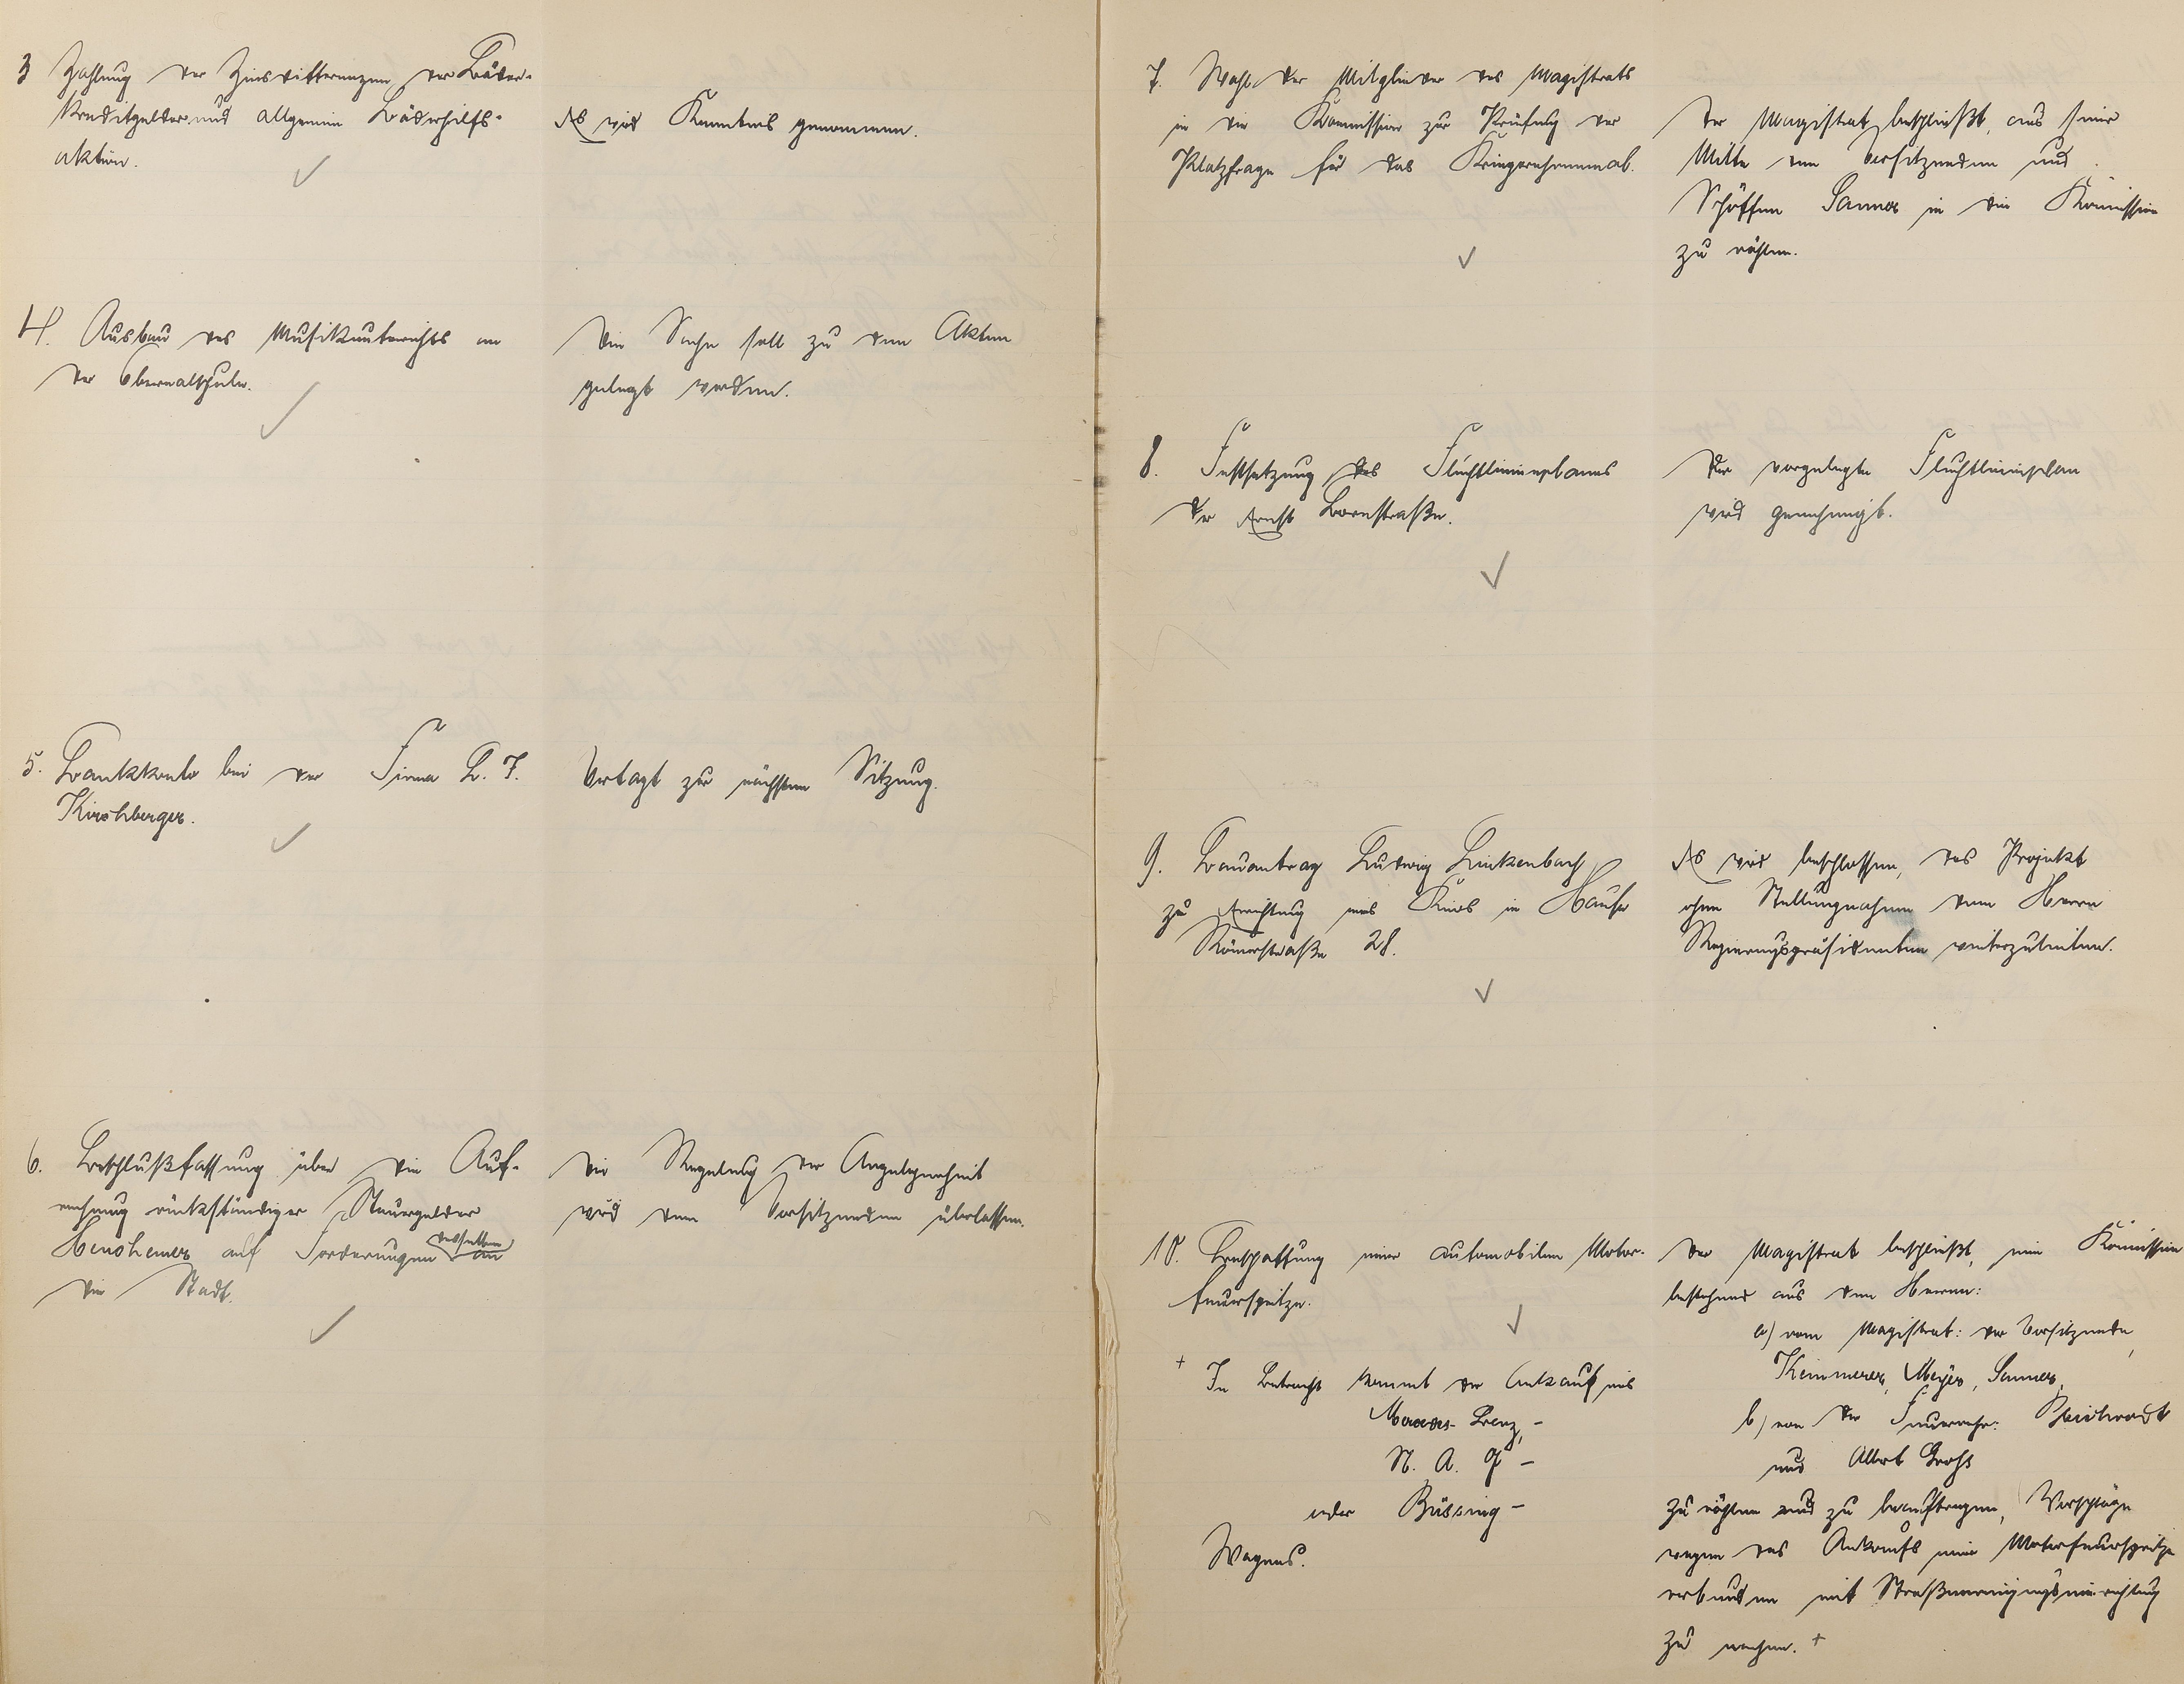 3 Zahlung der Zinsdifferenzen der Bäder-
kreditgelder und allgemein Bäderhilfs-
aktion.
Es wird Kenntnis genommen.
4. Ausbau des Musikunterrichts an
der Oberrealschule.
Die Sache soll zu den Akten
gelegt werden.
5. Bankkonto bei der Firma B. J.
Kirschberger.
Vertagt zur nächsten Sitzung.
6. Beschlußfassung über die Auf-
rechnung rückständiger Steuergelder
auf Forderungen desselben an
die Stadt.
Die Regelung der Angelegenheit
wird dem Vorsitzenden überlassen.
7. Wahl der Mitglieder des Magistrats
in die Kommission zur Prüfung der
Platzfrage für das Kriegerehrenmal.
Der Magistrat beschließt, aus seiner
Mitte den Vorsitzenden und
Schöffen Sames in die Kommission
zu wählen.
8. Festsetzung des Fluchtlinienplanes
der Ernst Bornstraße.
Der vorgelegte Fluchtlinienplan
wird genehmigt.
9. Bauantrag Ludwig Linkenbach
zu Errichtung eines Kinos im Hause
Römerstraße 28.
Es wird beschlossen, das Projekt
ohne Stellungnahme dem Herrn
Regierungspräsidenten weiterzuleiten.
10. Beschaffung einer automobilen Motor-
feuerspritze.
+ In Betracht kommt der Ankauf eines
Mercedes-Benz, -
N. A. G -
oder Büssing -
Wagens.
Der Magistrat beschließt, eine Kommission
bestehend aus den Herren:
a) vom Magistrat: der Vorsitzende,
Kemmerer, Meyer, Sames,
b) von der Feuerwehr:
und Albert Groß
zu wählen und zu beauftragen, Vorschläge
wegen des Ankaufs einer Motorfeuerspritze
verbunden mit Straßenreinigungseinrichtung
zu machen. +